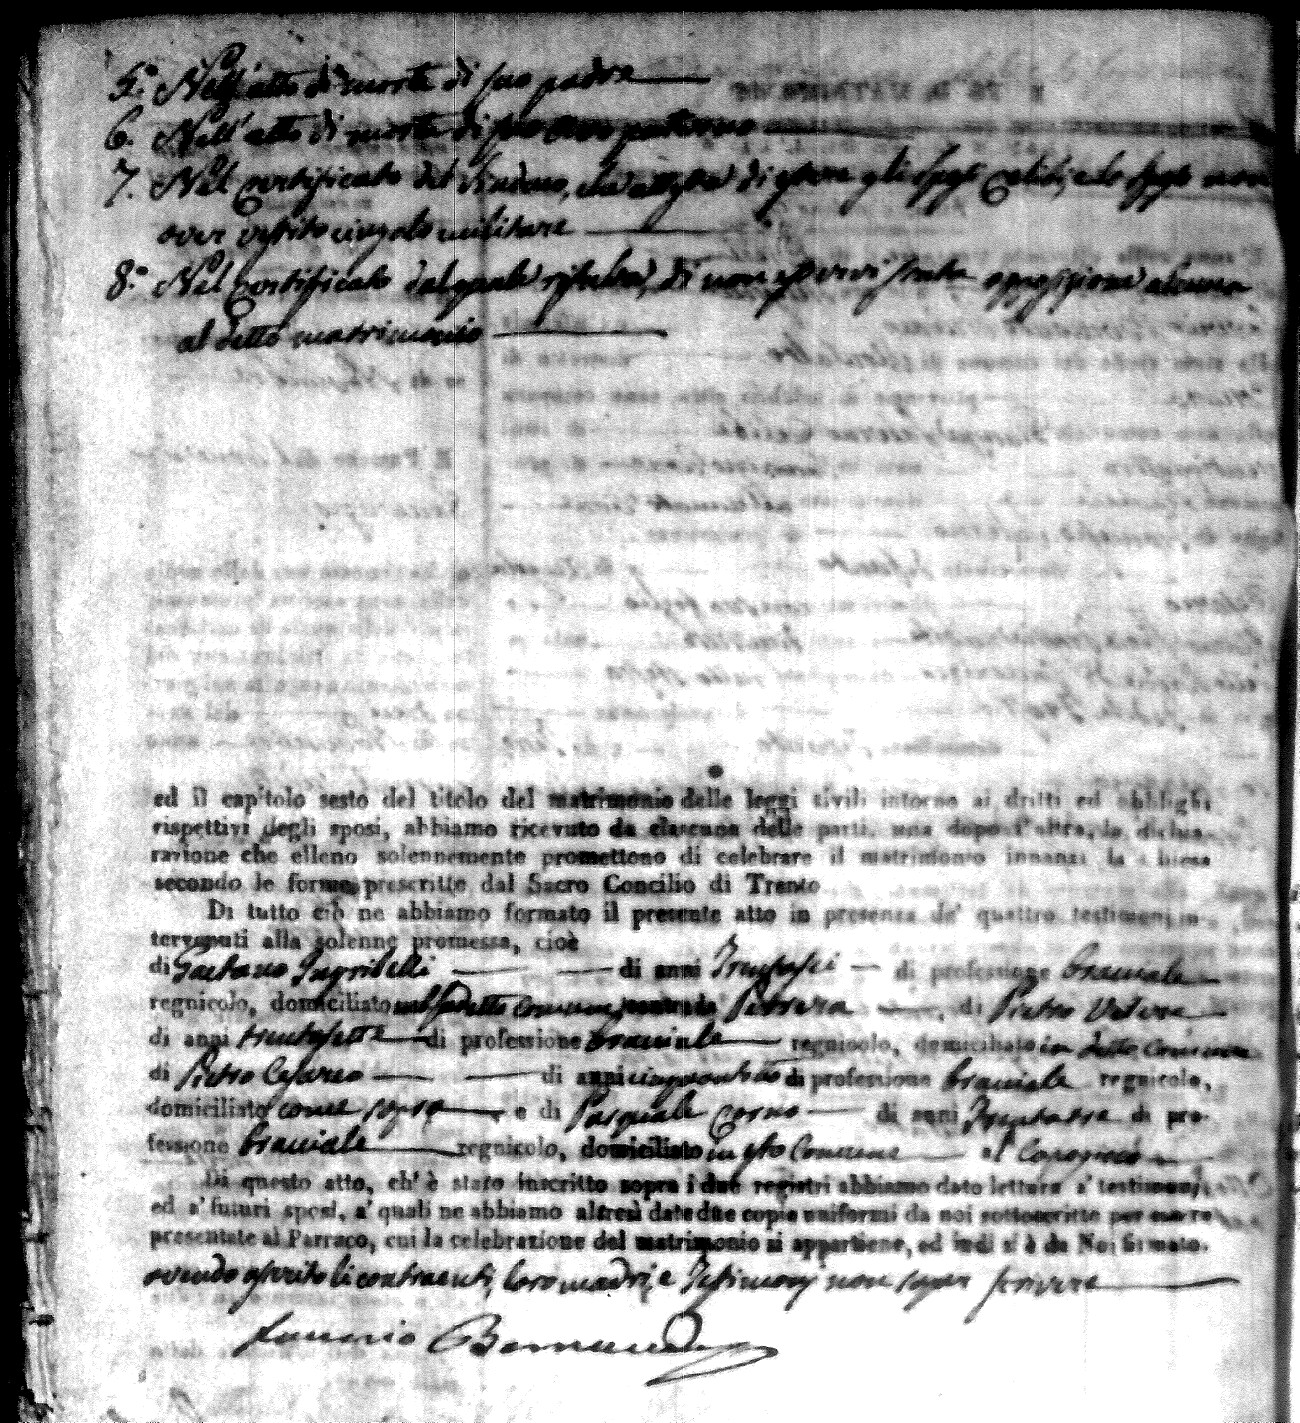 5.° Nell'atto di morte di suo padre
6. Nell'atto di morte di suo avo paterno
7. Nel certificato del Sindaco, che attesta di essere gli sposi celibi, e lo sposo non
aver vestito cingolo militare
8.° Nel certificato dal quale risulta, di non esservi stata opposizione alcuna
al detto matrimonio
ed il capitolo sesto del titolo del matrimonio delle leggi civili intorno ai dritti ed obblighi
rispettivi degli sposi, abbiamo ricevuto da ciascuna delle parti, una dopo l'altra, la dichia-
razione che elleno solennemente promettono di celebrare il matrimonio innanzi la Chiesa
secondo le forme prescritte dal Sacro Concilio di Trento
Di tutto ciò ne abbiamo formato il presente atto in presenza de' quattro testimonj in-
tervenuti alla solenne promessa, cioè
di Gaetano di anni Trentasei di professione bracciale
regnicolo, domiciliato nel sudetto comune, di Pietro
di anni trentasette di professione bracciale regnicolo, domiciliato in detto Comune
di Pietro di anni di professione bracciale regnicolo,
domiciliato come sopra e di Pasquale di anni Trentatre di pro-
fessione bracciale regnicolo, domiciliato in Comune
Di questo atto, ch' è stato inscritto sopra i due registri abbiamo dato lettura a' testimonj
ed a' futuri sposi, a' quali ne abbiamo altresì date due copie uniformi da noi sottoscritte per essere
presentate al Parroco, cui la celebrazione del matrimonio si appartiene, ed indi si è da Noi firmato.
avendo asserito li contraenti, loro madri, e Testimonj non saper scrivere